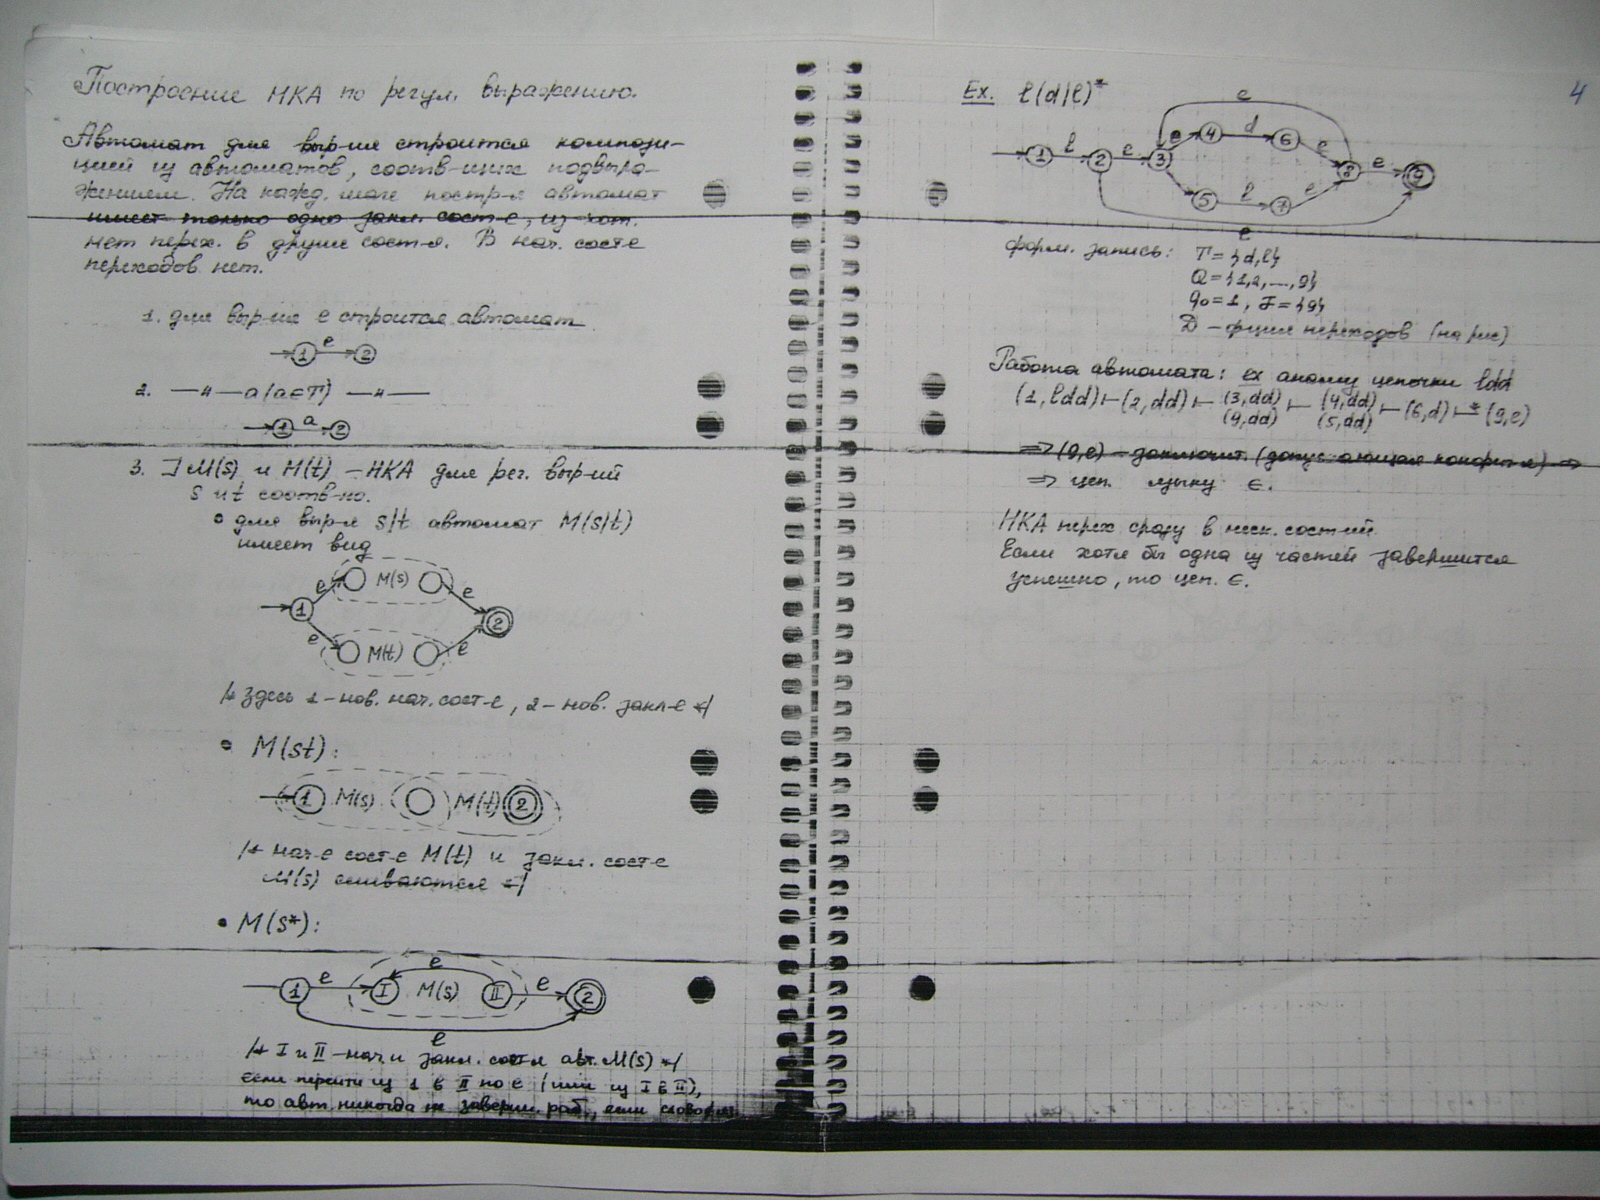 Построение НКА по регул. выражению.
Автомат для выр-ия строится компози-
цией из автоматов, соотв-щих подвыра-
жениям. На кажд. шаге постр-я автомат
имеет только одно закл. сост-е, из кот.
нет перех. в другие сост-я. В нач. сост-е
переходов нет.
1. для выр-ия e строится автомат
1 e 2
2. —"— a (a∈T) —"—
1 a 2
3. ] M(s) и M(t) – НКА для рег. выр-ий
s и t соотв-но.
• для выр-я s|t автомат M(s|t)
имеет вид
e M(s) e
1 2
e M(t) e
/* здесь 1 – нов. нач. сост-е, 2 – нов. закл-е */
• M(st):
1 M(s) M(t) 2
/* нач-е сост-е M(t) и закл. сост-е
M(s) сливаются */
• M(s*):
e
1 e I M(s) II e 2
e
/* I и II – нач и закл. сост-я авт. M(s) */
если перейти из 1 в II по e (или из I в II),
то авт. никогда не заверш. раб., если
4
Ex. l(d|l)*
e
1 l 2 e 3 e 4 d 6 e 8 e 9
5 l 7 e
e
форм. запись: T = {d, l}
Q = {1, 2, ..., 9}
q0 = 1, F = {9}
D – фция переходов (на рис)
Работа автомата: ex анализу цепочки ldd
(1, ldd) ⊢ (2, dd) ⊢ (3, dd) ⊢ (4, dd) ⊢ (6, d) ⊢* (9, e)
(9, dd) (5, dd)
⇒ (9, e) – заключит. (допускающая конфиг-я) ⇒
⇒ цеп. языку ∈.
НКА перех сразу в неск. сост-ий
Если хотя бы одна из частей завершится
успешно, то цеп. ∈.